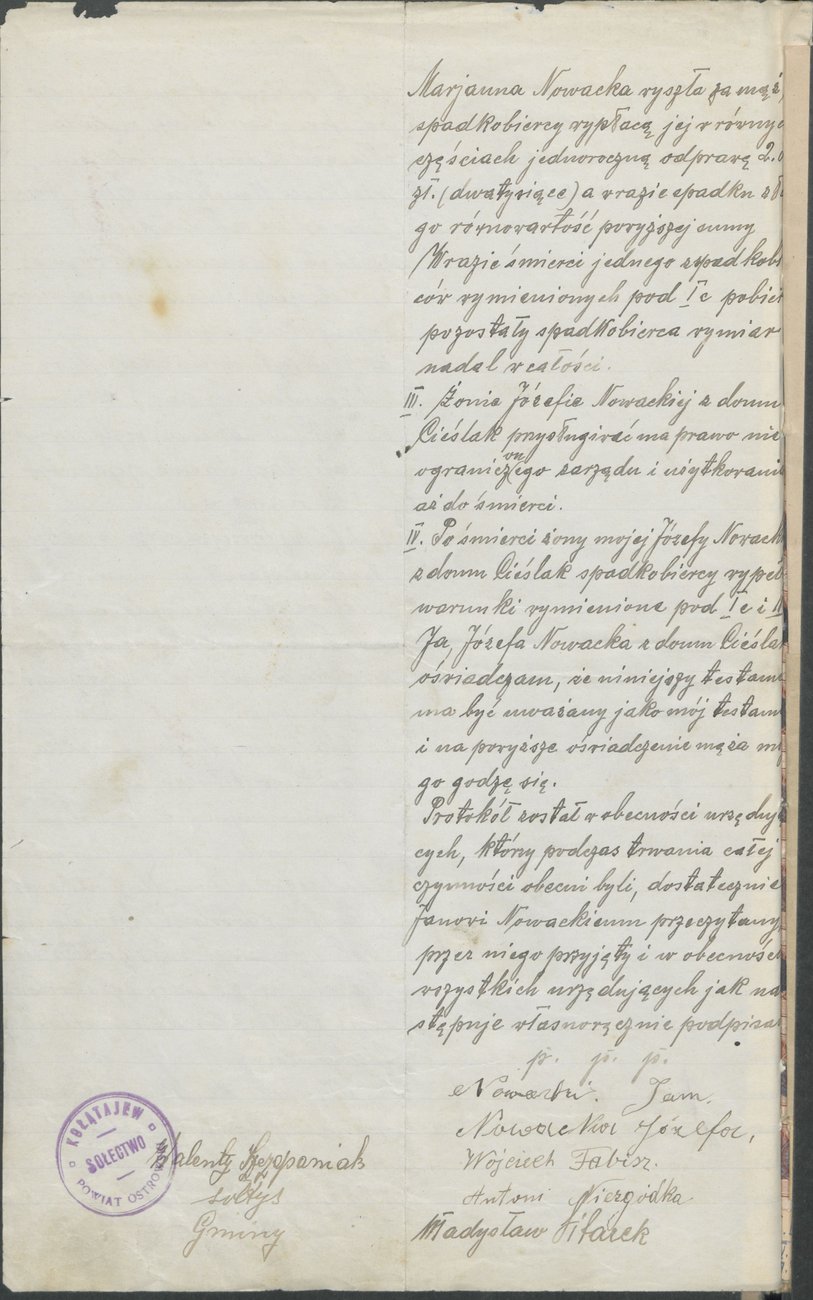 Marjanna Nowacka wyszła za mąż,
spadkobiercy wypłacą jej w równy
częściach jednoroczną odprawę 2.0
zł. (dwatysiące) a wrazie spadku zł
go równowartość powyższej sumy
Wrazie śmierci jednego zspadkob
ców wymienionych pod I c pobie
pozostały spadkobierca wymiar
nadal w całości.
III. Żonie Józefie Nowackiej z domu
Cieślak przysługiwać ma prawo nie
ograniczonego zarządu i użytkowani
aż do śmierci.
IV. Po śmierci żony mojej Józefy Nowack
z domu Cieślak spadkobiercy wypeł
warunki wymienione pod I c i II
Ja, Józefa Nowacka z domu Cieśla
oświadczam, że niniejszy testam
ma być uważany jako mój testam
i na powyższe oświadczenie męża m
go godzę się.
Protokół został w obecności urzędu
cych, którzy podczas trwania całej
czynności obecni byli, dostatecznie
Janowi Nowackiemu przeczytany
przez niego przyjęty i w obecnośc
wszystkich urzędujących jak na
stępuje własnoręcznie podpisa
p. p. p.
Nowacki. Jan.
Nowacka Józefa,
Wojciech Fabisz.
Antoni Niezgódka
Władysław
KOŁĄTAJEW
SOŁECTWO
POWIAT OSTROWSKI
Walenty Szczepaniak
sołtys
Gminy